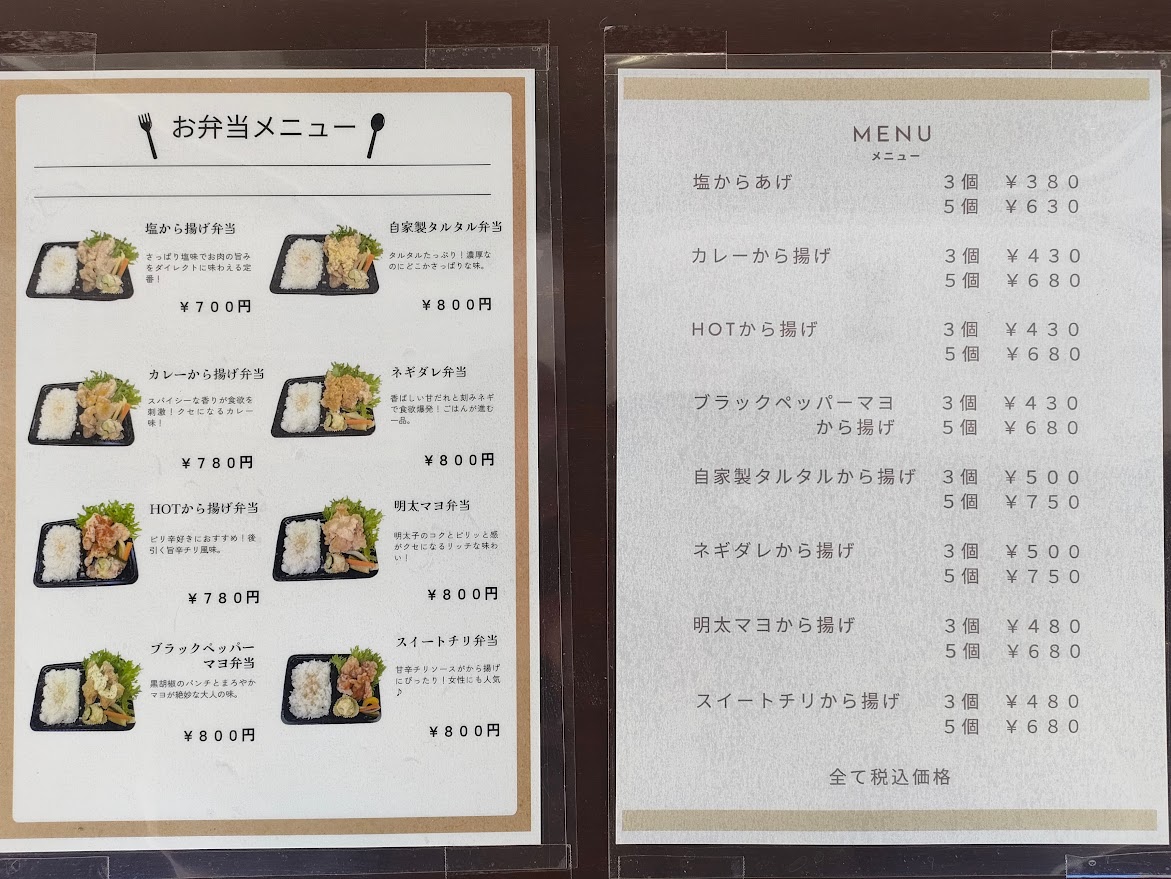 お弁当メニュー
塩から揚げ弁当
さっぱり塩味でお肉の旨み
をダイレクトに味わえる定
番！
￥７００円
自家製タルタル弁当
タルタルたっぷり！濃厚な
のにどこかさっぱりな味。
￥８００円
カレーから揚げ弁当
スパイシーな香りが食欲を
刺激！クセになるカレー
味！
￥７８０円
ネギダレ弁当
香ばしい甘だれと刻みネギ
で食欲爆発！ごはんが進む
一品。
￥８００円
HOTから揚げ弁当
ピリ辛好きにおすすめ！後
引く旨辛チリ風味。
￥７８０円
明太マヨ弁当
明太子のコクとピリッと感
がクセになるリッチな味わ
い！
￥８００円
ブラックペッパー
マヨ弁当
黒胡椒のパンチとまろやか
マヨが絶妙な大人の味。
￥８００円
スイートチリ弁当
甘辛チリソースがから揚げ
にぴったり！女性にも人気
♪
￥８００円
MENU
メニュー
塩からあげ ３個 ￥３８０
５個 ￥６３０
カレーから揚げ ３個 ￥４３０
５個 ￥６８０
HOTから揚げ ３個 ￥４３０
５個 ￥６８０
ブラックペッパーマヨ ３個 ￥４３０
から揚げ ５個 ￥６８０
自家製タルタルから揚げ ３個 ￥５００
５個 ￥７５０
ネギダレから揚げ ３個 ￥５００
５個 ￥７５０
明太マヨから揚げ ３個 ￥４８０
５個 ￥６８０
スイートチリから揚げ ３個 ￥４８０
５個 ￥６８０
全て税込価格